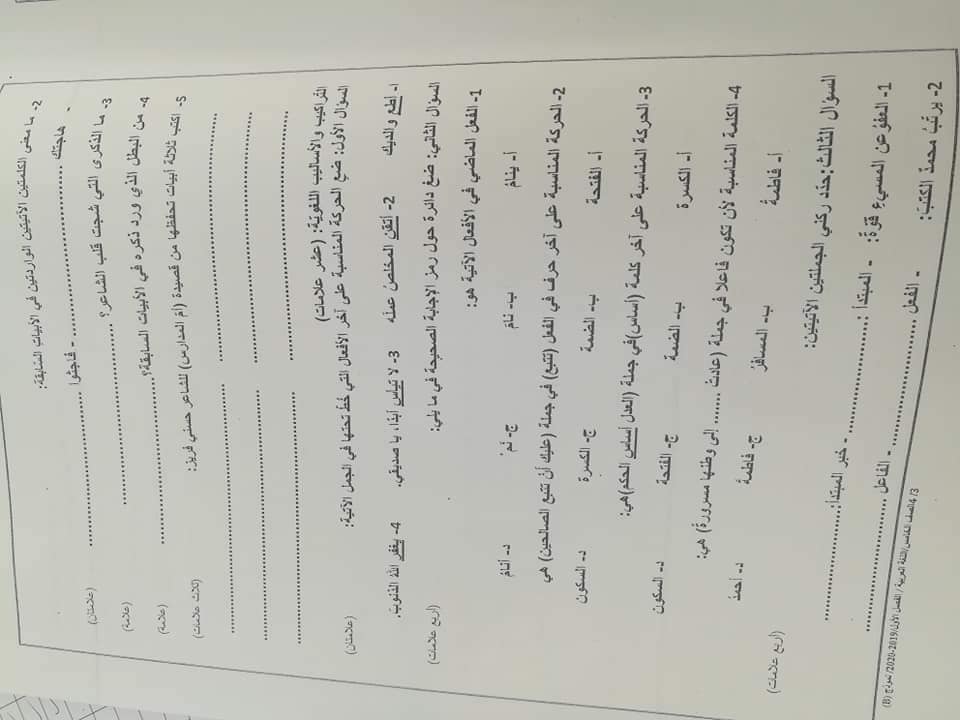 2- ما معنى الكلمتين الآتيتين الواردتين في الأبيات السّابقة:
- هاجتك .................................... - فاجثوا ................................. (علامتان)
3- ما الذكرى التي شجت قلب الشاعر؟ ....................................... (علامة)
4- من البطل الذي ورد ذكره في الأبيات السابقة؟................................... (علامة)
5- اكتب ثلاثة أبيات تحفظها من قصيدة (أم المدارس) للشاعر حسني فريز: (ثلاث علامات)
.................................................... ....................................................
.................................................... ....................................................
.................................................... ....................................................
التّراكيب والأساليب اللغويّة: (عشر علامات)
السؤال الأول: ضع الحركة المناسبة على آخر الأفعال التي خُطّ تحتها في الجمل الآتية: (علامتان)
١- أطع والديك 2- أتقن المخلصُ عملَه 3- لا تيأس أبدًا، يا صديقي. 4- يغفر اللهُ الذنوبَ.
السؤال الثاني: ضعْ دائرة حول رمز الإجابة الصحيحة في ما يلي: (أربع علامات)
1- الفعل الماضي في الأفعال الآتية هو:
أ- ينامُ ب- نامَ ج- نَمْ د- أنامُ
2- الحركة المناسبة على آخر حرف في الفعل (تتبع) في جملة (عليك أنْ تتبع الصالحين) هي
أ- الفتحة ب- الضمة ج- الكسرة د- السكون
3- الحركة المناسبة على آخر كلمة (أساس)في جملة (العدل أساس الحكم)هي:
أ- الكسرة ب- الضمة ج- الفتحة د- السكون
4- الكلمة المناسبة لأن تكون فاعلا في جملة (عادتْ ....... إلى وطنها مسرورةً) هي:
أ- فاطمةُ ب- المسافرُ ج- فاطمةً د- أحمدُ
السؤال الثالث:حدّد ركني الجملتين الآتيتين: (أربع علامات)
1- العفوُ عن المسيءِ قوّةٌ: - المبتدأ :......................... - خبر المبتدأ:.........................
2- يرتّبُ محمدٌ الكتبَ: - الفعل ......................... - الفاعل .........................
4/3الصف الخامس/اللغة العربية / الفصل الأول/2019-2020/ نموذج (B)